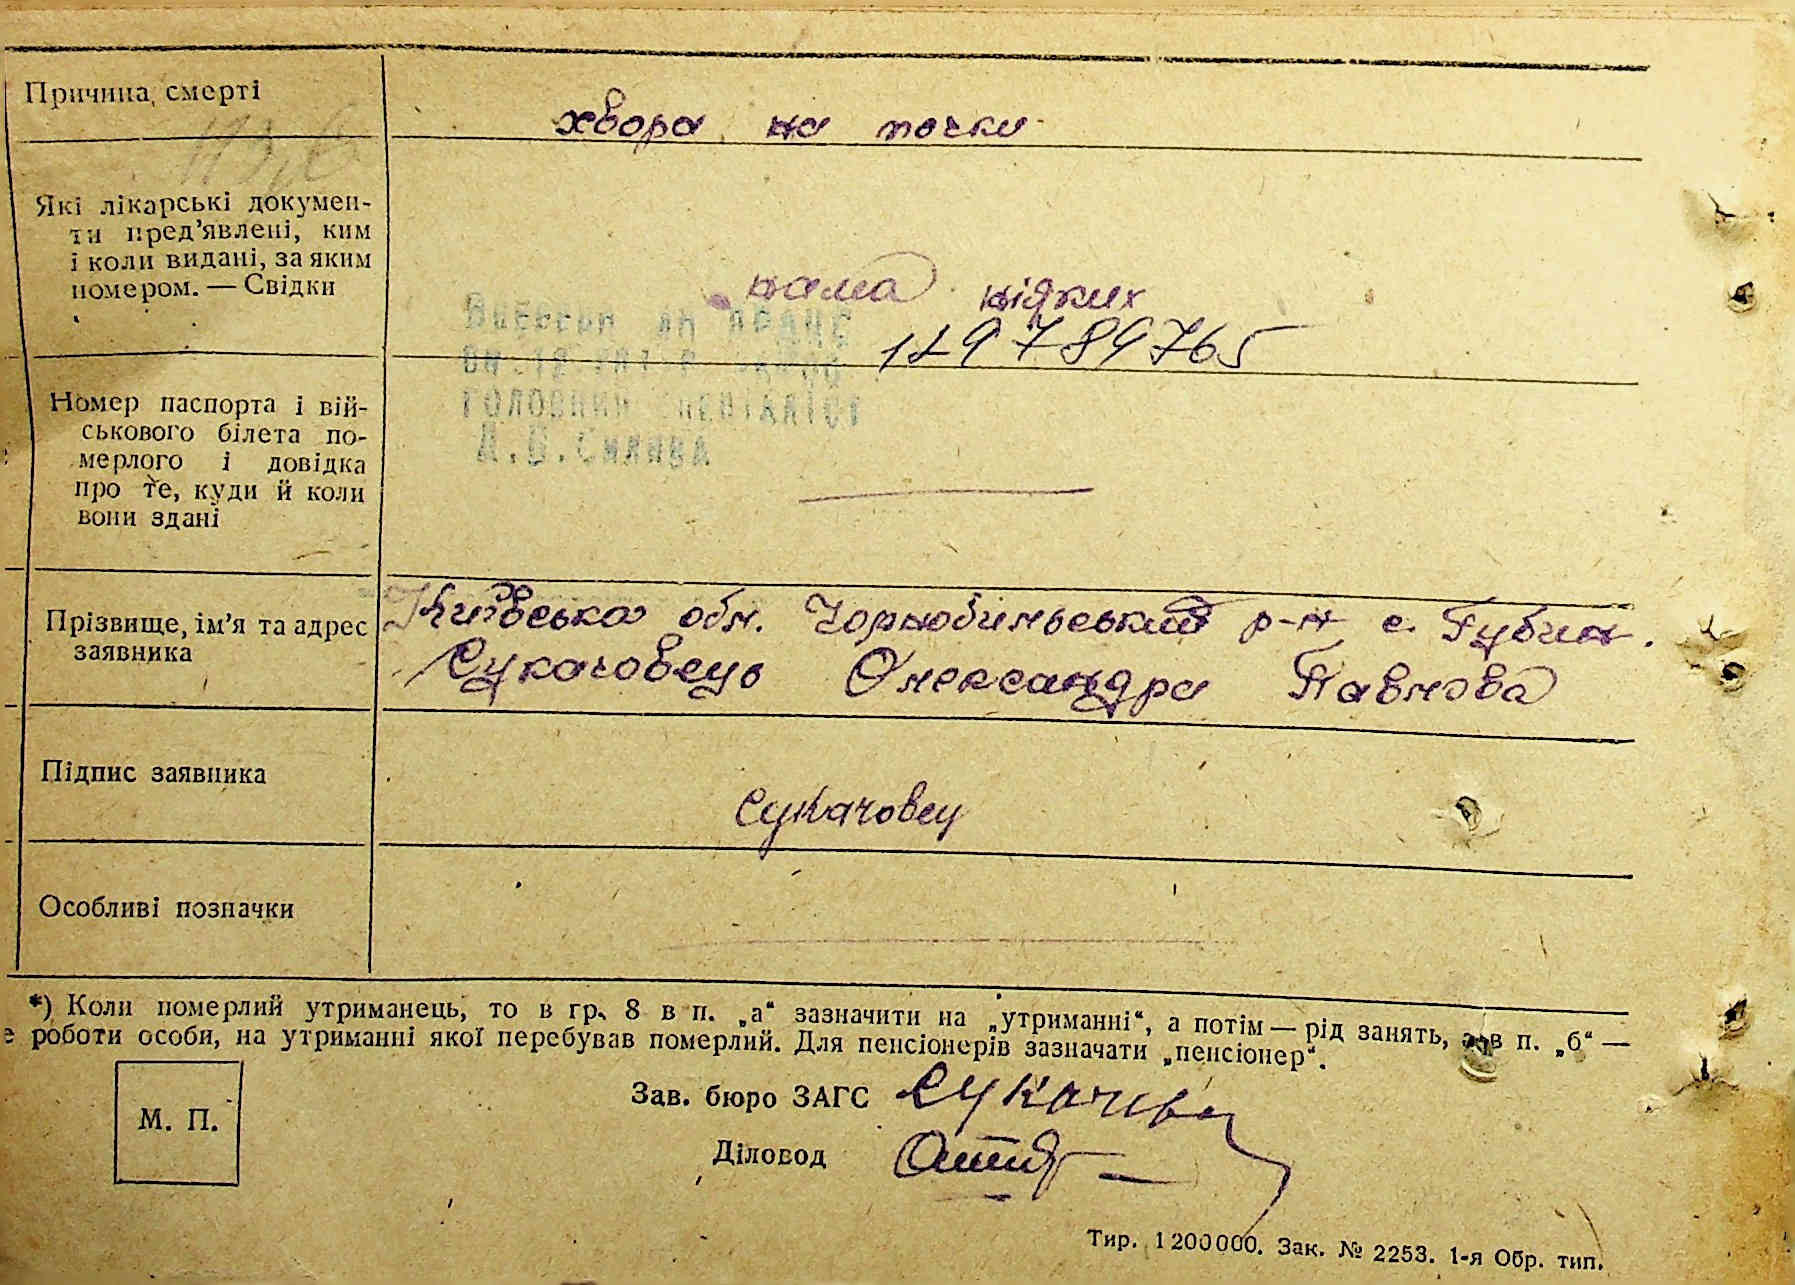 Причина смерті
хвора на почки
Які лікарські докумен-
ти пред'явлені, ким
і коли видані, за яким
номером. — Свідки
нама ніяких
Номер паспорта і вій-
ськового білета по-
мерлого і довідка
про те, куди й коли
вони здані
головний спеціаліст
Прізвище, ім'я та адрес
заявника
Київська обл. Чорнобильський р-н с. Губин.
Сукачовець Олександра Павлова
Підпис заявника
Сукачовец
Особливі позначки
*) Коли померлий утриманець, то в гр. 8 в п. „а“ зазначити на „утриманні“, а потім — рід занять, а в п. „б“ —
е роботи особи, на утриманні якої перебував померлий. Для пенсіонерів зазначати „пенсіонер“.
М. П.
Зав. бюро ЗАГС
Діловод
Тир. 1200000. Зак. № 2253. 1-я Обр. тип.